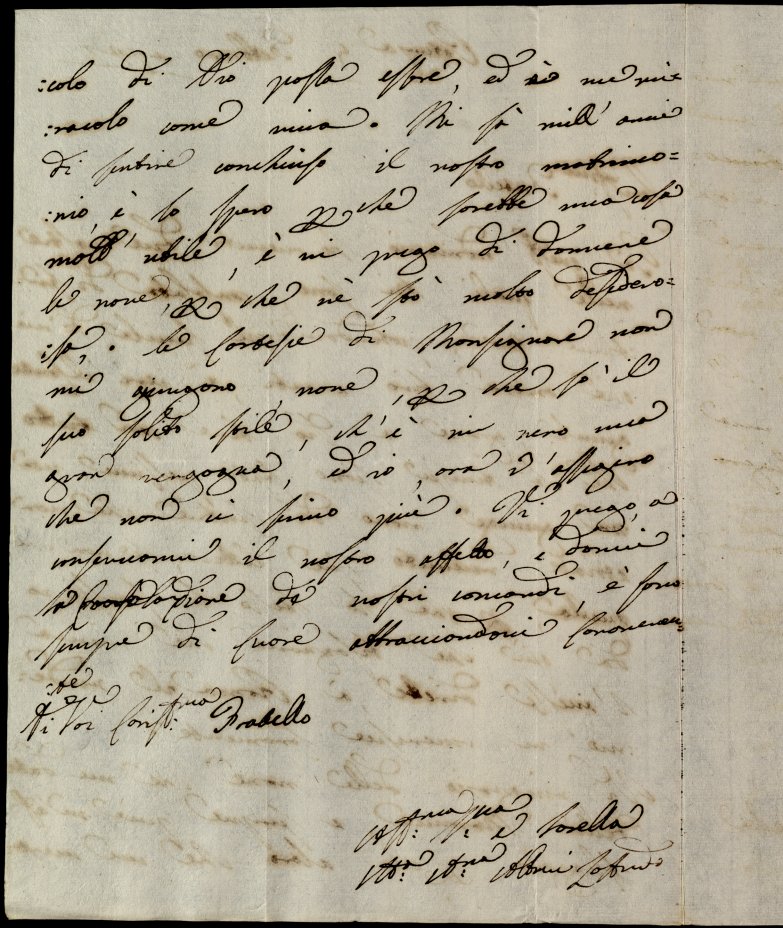 :colo di Dio possa essere, ed io ne mi=
:racolo come mia. Mi fà mill' anni
di sentire conchiuso il vostro matrimo=
:nio, è lo spero che sarebbe una cosa
molt' utile, è vi prego di darmene
le nove, che nè stò molto desidero=
:sa. le Cortesie di Monsignore non
mi giungono nove, che sò il
suo solito stile, ch' è in vero una
gran vergogna, ed io, ora d'
che non ci sono più. Vi prego a
conservarmi il vostro affetto, e darmi
la consolazione de' vostri comandi, è sono
sempre di cuore abbracciandovi caramen=
:te
Di Voi Cariss:mo Fratello
Aff:ma e Sorella